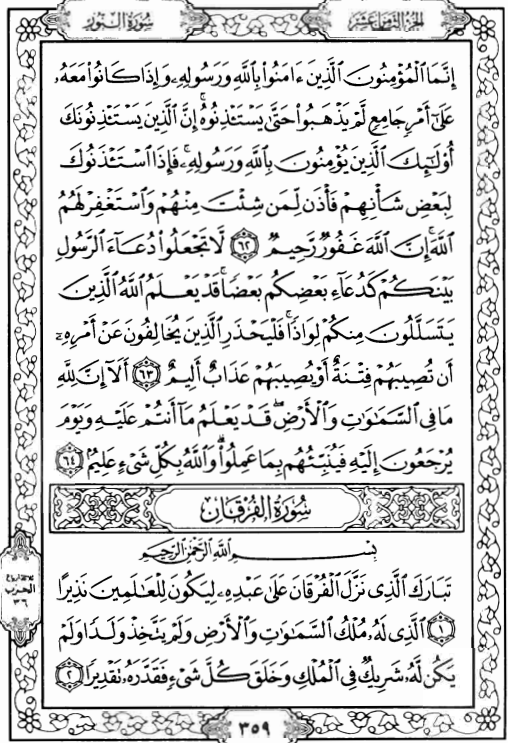 الجزء الثامن عشر سُورَةُ النُّورِ
إِنَّمَا ٱلْمُؤْمِنُونَ ٱلَّذِينَ ءَامَنُوا۟ بِٱللَّهِ وَرَسُولِهِۦ وَإِذَا كَانُوا۟ مَعَهُۥ
عَلَىٰٓ أَمْرٍ جَامِعٍ لَّمْ يَذْهَبُوا۟ حَتَّىٰ يَسْتَـْٔذِنُوهُ ۚ إِنَّ ٱلَّذِينَ يَسْتَـْٔذِنُونَكَ
أُو۟لَـٰٓئِكَ ٱلَّذِينَ يُؤْمِنُونَ بِٱللَّهِ وَرَسُولِهِۦ ۚ فَإِذَا ٱسْتَـْٔذَنُوكَ
لِبَعْضِ شَأْنِهِمْ فَأْذَن لِّمَن شِئْتَ مِنْهُمْ وَٱسْتَغْفِرْ لَهُمُ
ٱللَّهَ ۚ إِنَّ ٱللَّهَ غَفُورٌ رَّحِيمٌ ٦٢ لَّا تَجْعَلُوا۟ دُعَآءَ ٱلرَّسُولِ
بَيْنَكُمْ كَدُعَآءِ بَعْضِكُم بَعْضًا ۚ قَدْ يَعْلَمُ ٱللَّهُ ٱلَّذِينَ
يَتَسَلَّلُونَ مِنكُمْ لِوَاذًا ۚ فَلْيَحْذَرِ ٱلَّذِينَ يُخَالِفُونَ عَنْ أَمْرِهِۦٓ
أَن تُصِيبَهُمْ فِتْنَةٌ أَوْ يُصِيبَهُمْ عَذَابٌ أَلِيمٌ ٦٣ أَلَآ إِنَّ لِلَّهِ
مَا فِى ٱلسَّمَـٰوَٰتِ وَٱلْأَرْضِ ۖ قَدْ يَعْلَمُ مَآ أَنتُمْ عَلَيْهِ وَيَوْمَ
يُرْجَعُونَ إِلَيْهِ فَيُنَبِّئُهُم بِمَا عَمِلُوا۟ ۗ وَٱللَّهُ بِكُلِّ شَىْءٍ عَلِيمٌۢ ٦٤
سُورَةُ الْفُرْقَانِ
بِسْمِ اللَّهِ الرَّحْمَٰنِ الرَّحِيمِ
تَبَارَكَ ٱلَّذِى نَزَّلَ ٱلْفُرْقَانَ عَلَىٰ عَبْدِهِۦ لِيَكُونَ لِلْعَـٰلَمِينَ نَذِيرًا
١ ٱلَّذِى لَهُۥ مُلْكُ ٱلسَّمَـٰوَٰتِ وَٱلْأَرْضِ وَلَمْ يَتَّخِذْ وَلَدًا وَلَمْ
يَكُن لَّهُۥ شَرِيكٌ فِى ٱلْمُلْكِ وَخَلَقَ كُلَّ شَىْءٍ فَقَدَّرَهُۥ تَقْدِيرًا ٢
ثلاثة أرباع
الحزب
٣٦
٣٥٩